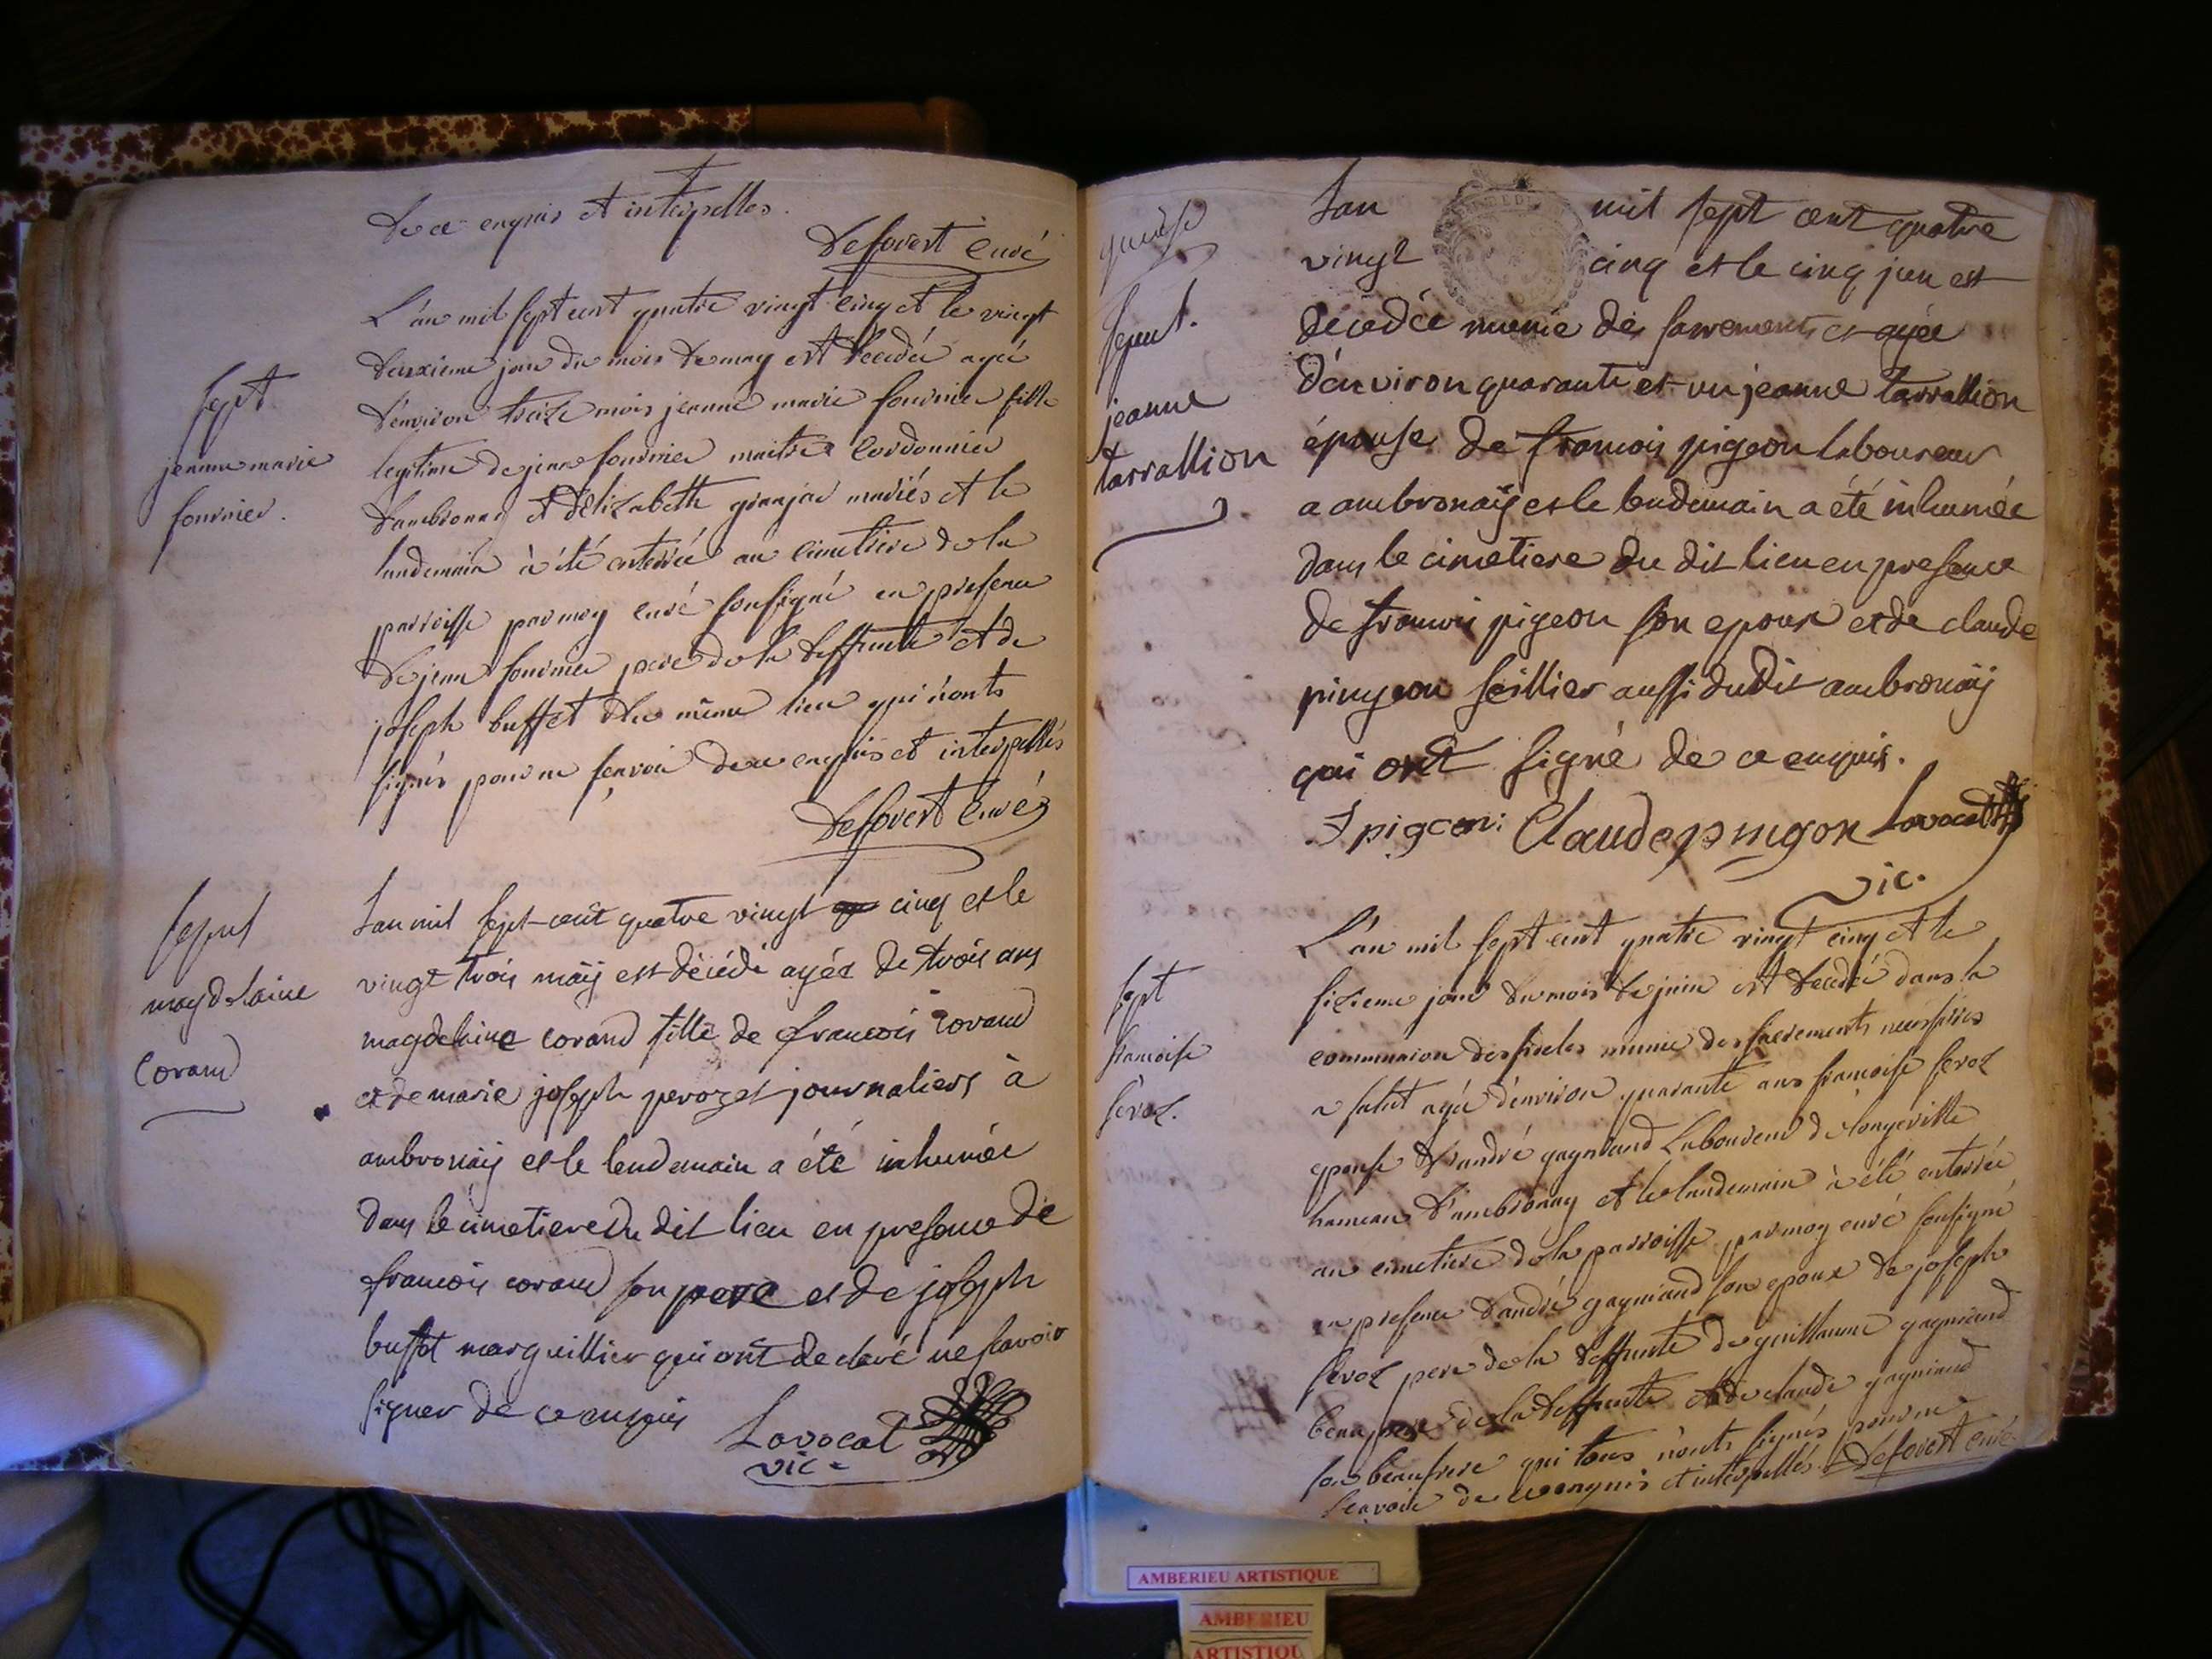 de ce enquis et interpellés.
Defovert curé
L'an mil sept cent quatre vingt cinq et le vingt
deuxieme jour du mois de may est decedée agée
d'environ treize mois jeanne marie fournier fille
legitime de jean fournier maitre Cordonnier
d'ambronay et d'Elizabeth granjac mariés et le
landemain à été enterrée au cimetiere de la
parroisse par moy curé sousigné en presence
de jean fournier pere de la deffunte et de
joseph buffet du même lieu qui n'onts
signés pour ne sçavoir de ce enquis et interpellés
Defovert curé
sept
jeanne marie
fournier.
Lan mil sept cent quatre vingt cinq et le
vingt trois maÿ est décédé agée de trois ans
magdelaine corand fille de francois corand
et de marie joseph perozet journaliers à
ambronaÿ et le lendemain a été inhumée
dans le cimetiere du dit lieu en presence de
francois corand son pere et de joseph
buffet marguillier qui ont declaré ne scavoir
signer de ce enquis
Lavocat
vic.
sepul
magdelaine
Corand
Lan mil sept cent quatre
vingt cinq et le cinq juin est
décédée munie des sacrements et agée
d'environ quarante et un jeanne tarrallion
épouse de francois pigeon laboureur
a ambronaÿ et le lendemain a été inhumée
dans le cimetiere du dit lieu en presence
de francois pigeon son epoux et de claude
pingeon seillier aussi du dit ambronaÿ
qui ont signé de ce enquis.
F pigeon: Claude pingon Lavocat
vic.
sepul.
jeanne
tarrallion
L'an mil sept cent quatre vingt cinq et le
sizieme jour du mois de juin est decedée dans la
communion des fideles munie des sacrements necessaires
a salut agée d'environ quarante ans francoise ferol
epouse d'andré gagniand Laboureur de longeville
hameau d'ambronay et le landemain à été enterrée
au cimetiere de la parroisse par moy curé sousigné
en presence d'andré gagniand son epoux de joseph
ferol pere de la deffunte de guillaume gagniand
beau pere de la deffunte et de claude gagniand
son beaufrere qui tous n'onts signés pour ne
sçavoir de ce enquis et interpellés. Defovert curé
sept
francoise
ferol.
AMBERIEU ARTISTIQUE
AMBERIEU
ARTISTIQU